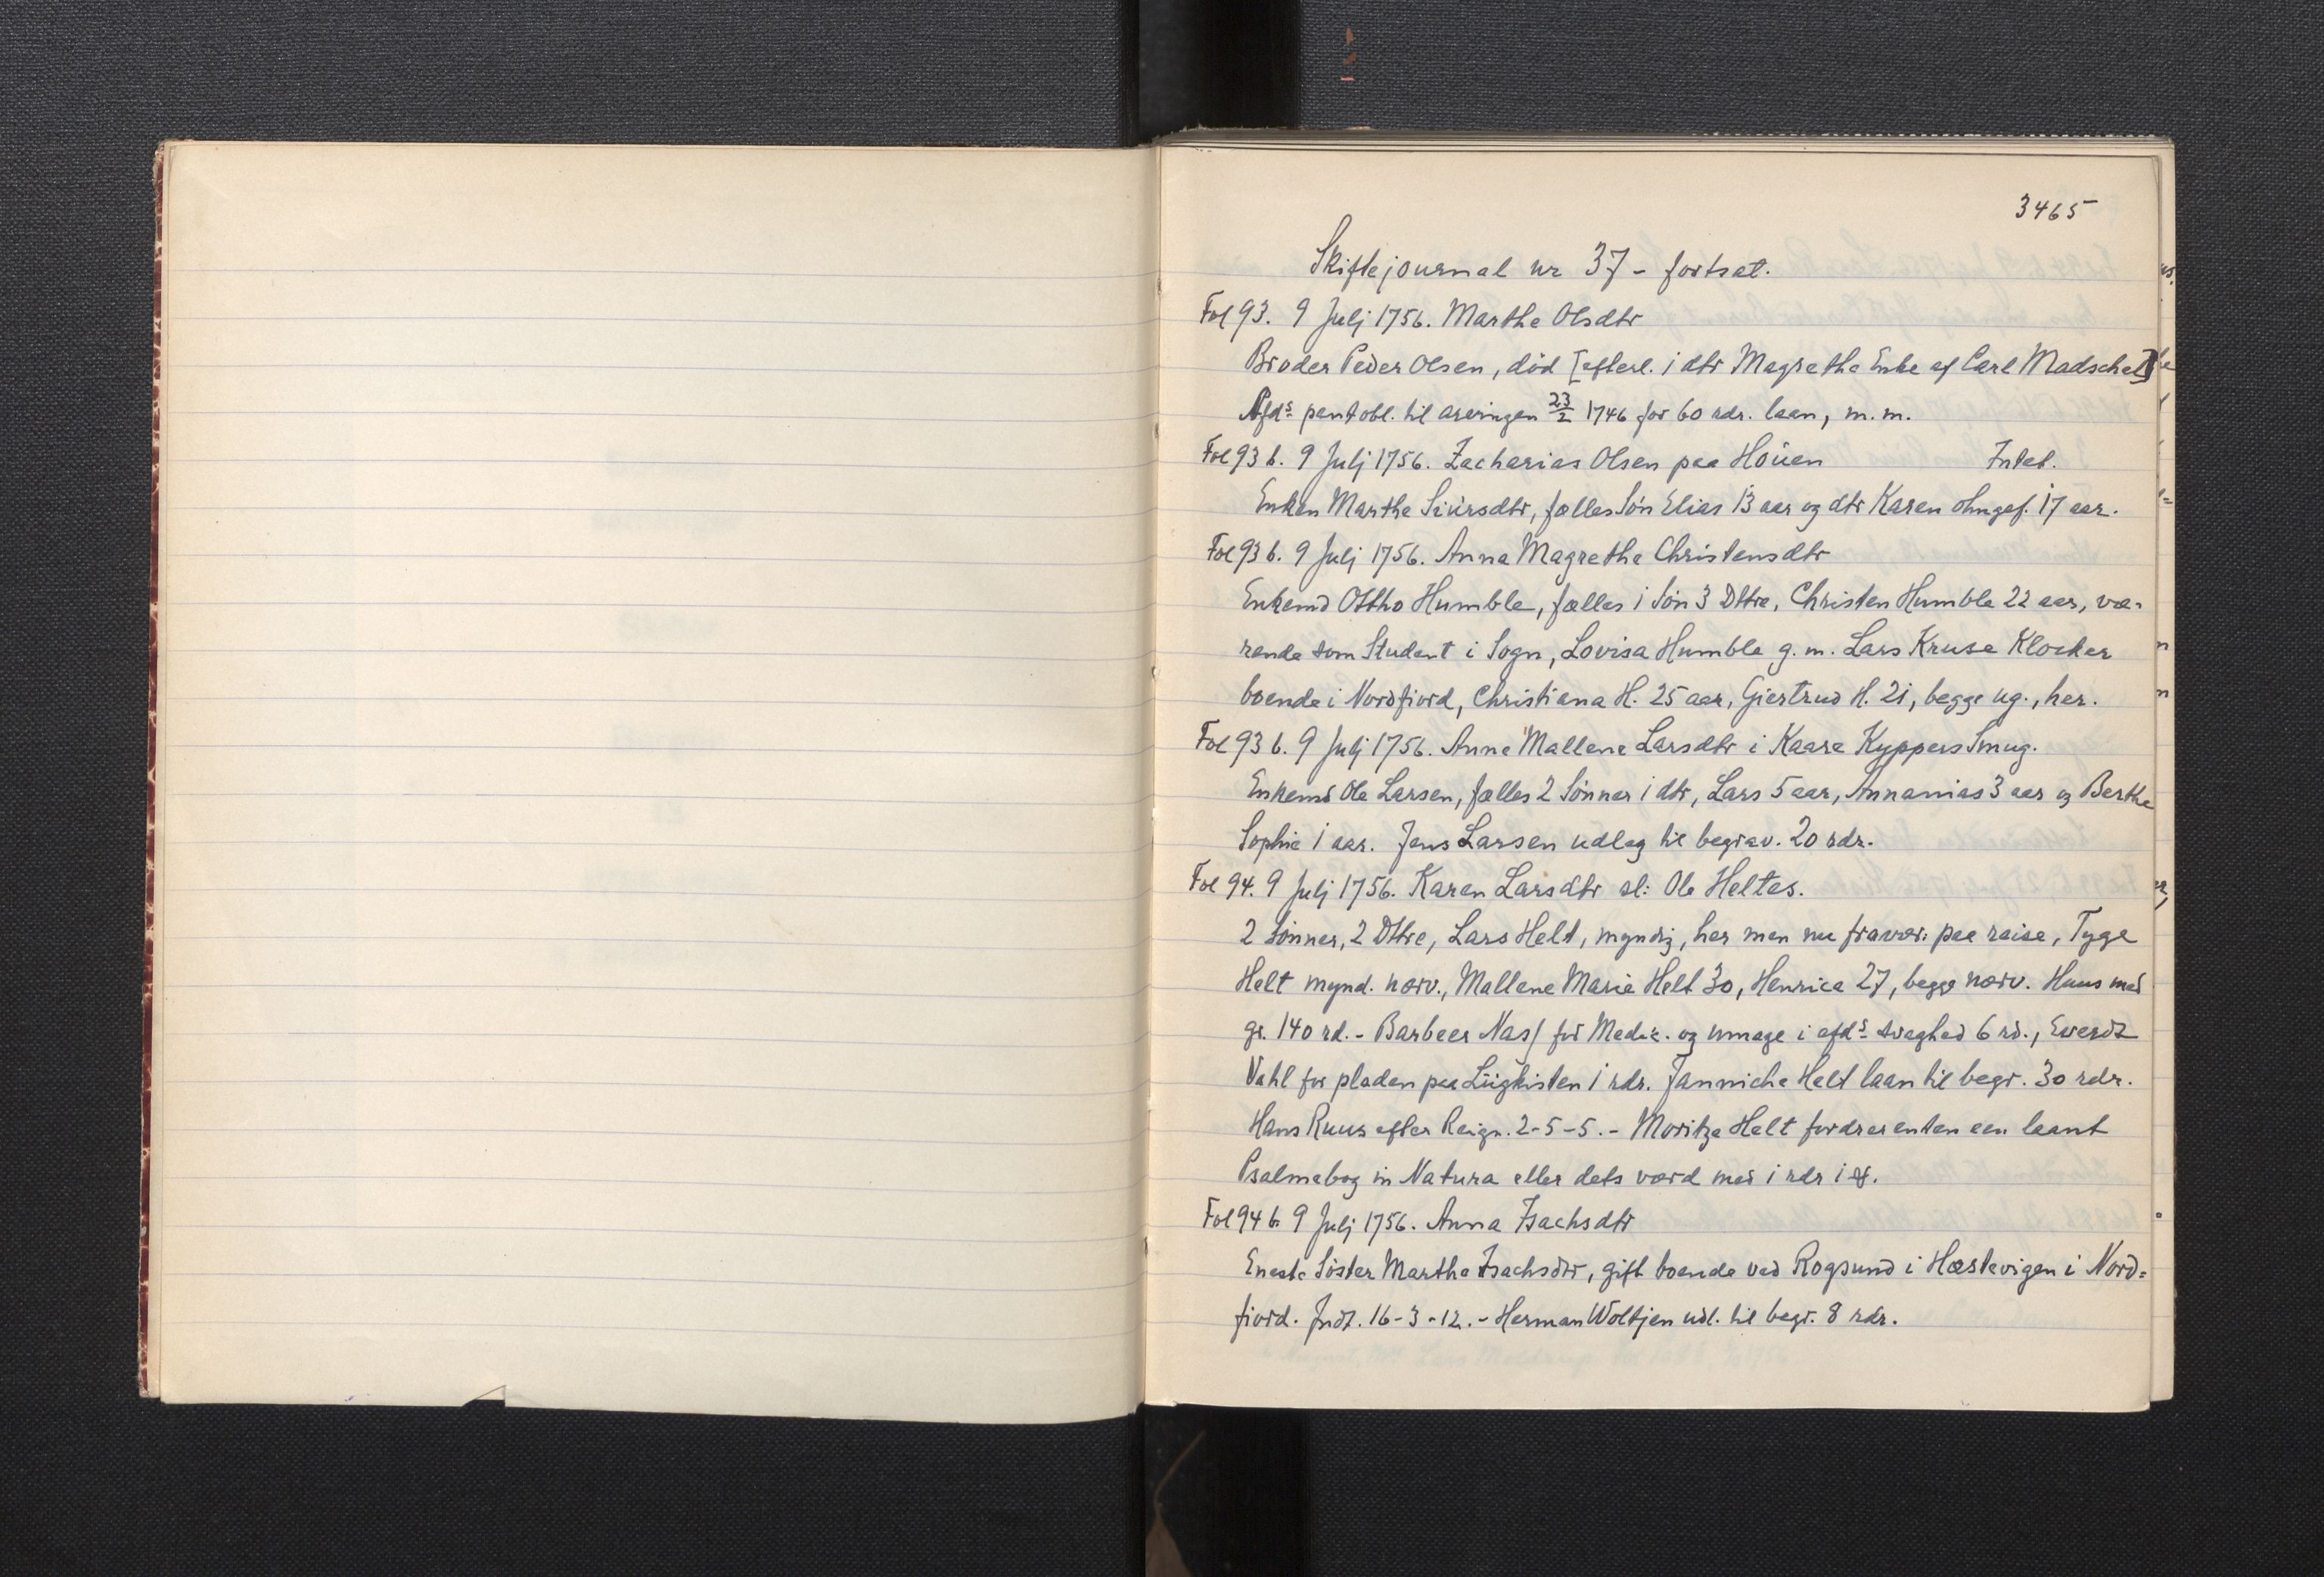 3465
Skiftejournal nr 37 - fortsat.
Fol 93. 9 Julj 1756. Marthe Olsdtr
Broder Peder Olsen, död [efterl. 1 dtr Magrethe Enke af Carl Madschel]
Afds pantobl. til areringen 23/2 1746 for 60 rdr. laan, m.m.
Fol 93 b. 9 Julj 1756. Zacharias Olsen paa Höuen Intet.
Enken Marthe Siursdtr, fælles Sön Elias 13 aar og dtr Karen ohngef. 17 aar.
Fol 93 b. 9 Julj 1756. Anna Magrethe Christensdtr
Enkemd Ottho Humble, fælles 1 Sön 3 Dttre, Christen Humble 22 aar, væ-
rende som Student i Sogn, Lovisa Humble g. m. Lars Kruse Klocker
boende i Nordfiord, Christiana H. 25 aar, Giertrud H. 21, begge ug., her.
Fol 93 b. 9 Julj 1756. Anne Mallene Larsdtr i Kaare Kyppers Smug.
Enkemd Ole Larsen, fælles 2 Sönner 1 dtr, Lars 5 aar, Annanias 3 aar og Berthe
Sophie 1 aar. Jens Larsen udlæg til begrav. 20 rdr.
Fol 94. 9 Julj 1756. Karen Larsdtr sl: Ole Heltes.
2 Sönner, 2 Dttre, Lars Helt, myndig, her men nu fravær: paa reise, Tyge
Helt mynd. nærv., Mallene Marie Helt 30, Henrica 27, begge nærv. Huus med
gr. 140 rd. - Barbeer Nas/ for Medic. og umage i afds svaghed 6 rd., Everdt
Vahl for pladen paa Liigkisten 1 rdr. Janniche Helt laan til begr. 30 rdr.
Hans Ruus efter Reign. 2-5-5. - Moritze Helt fordrer enten een laant
Psalmebog in Natura eller dets værd med 1 rdr 1 ℳ.
Fol 94 b. 9 Julj 1756. Anna Isachsdtr
Eneste Söster Marthe Isachsdtr, gift boende ved Rogsund i Hæstevigen i Nord=
fiord. Indt. 16-3-12. - Herman Woltjen udl. til begr. 8 rdr.